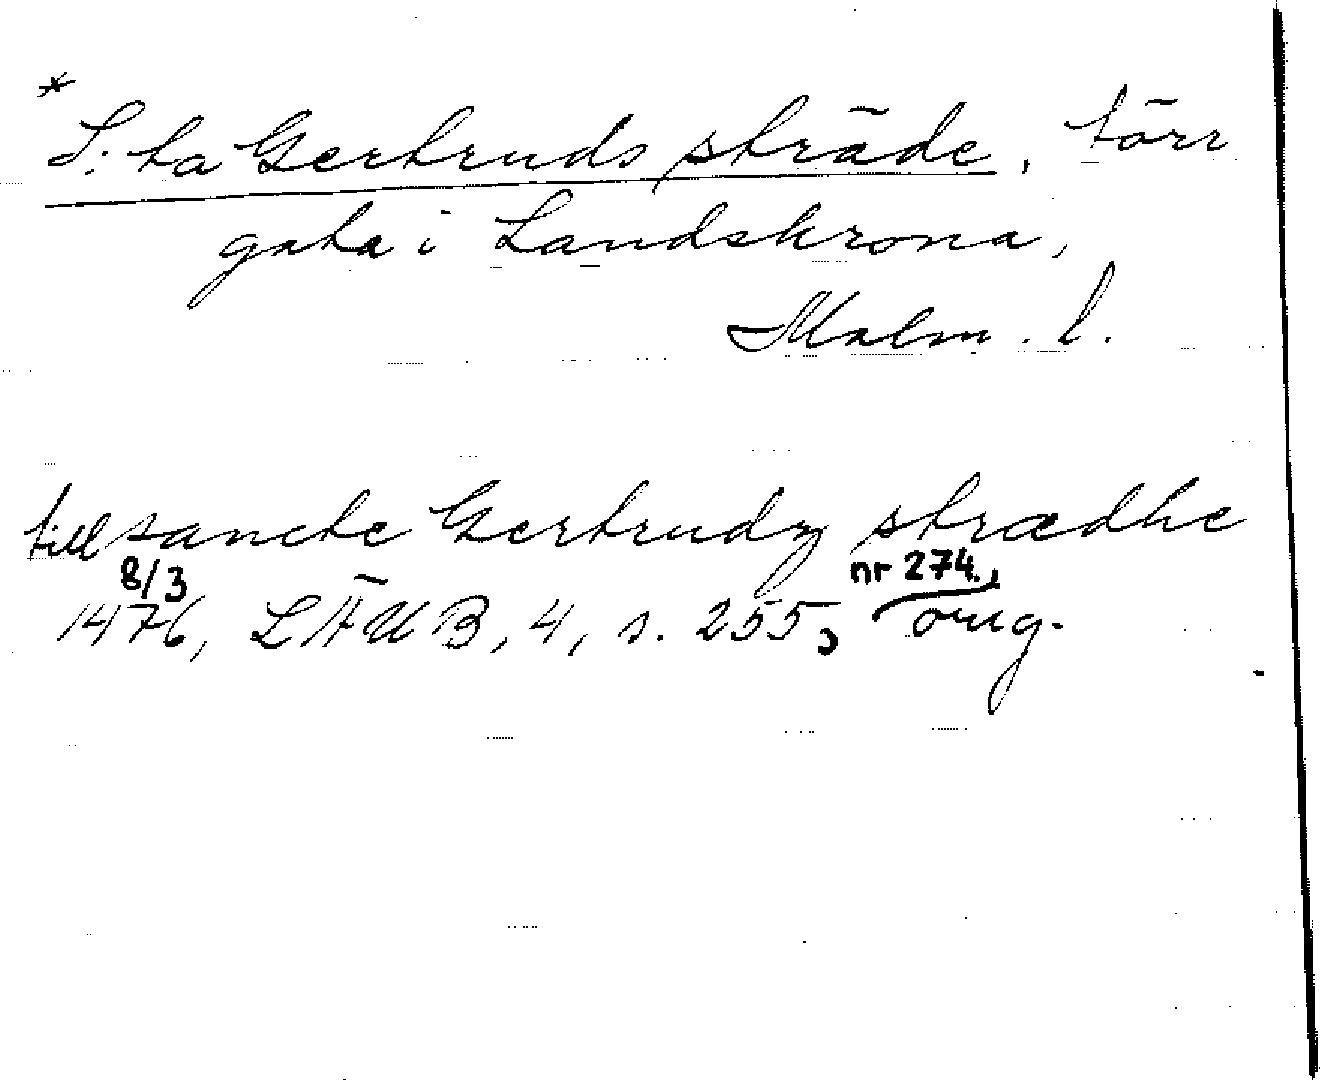 *
S:ta Gertruds stræde, förr
gata i Landskrona,
Malm. l.
till sancte Gertrudz strædhe
8/3 nr 274,
1476, LÄUB, 4, s. 255, orig.